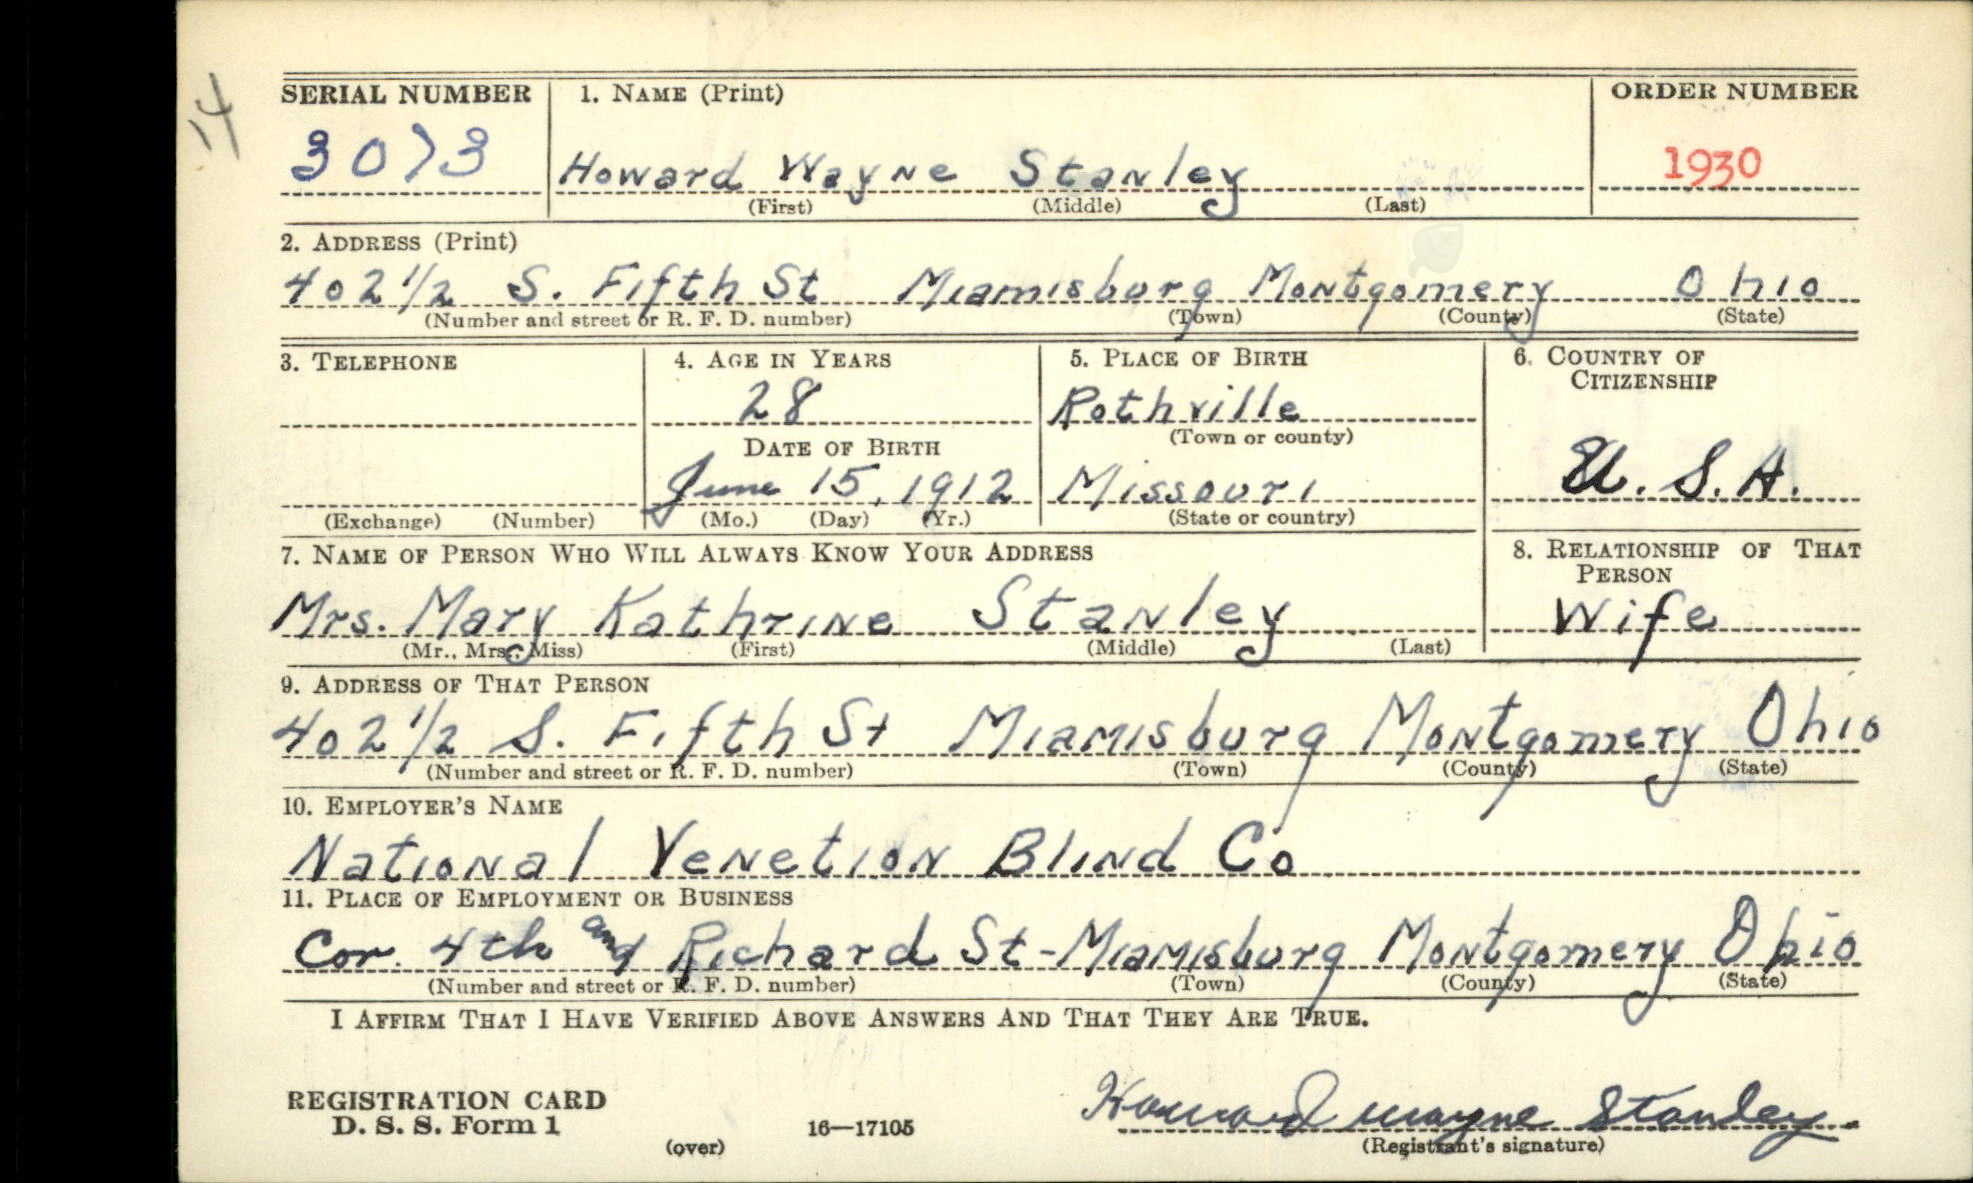 14
SERIAL NUMBER 1. NAME (Print) ORDER NUMBER
3073 Howard Wayne Stanley 1930
(First) (Middle) (Last)
2. ADDRESS (Print)
402 1/2 S. Fifth St Miamisburg Montgomery Ohio
(Number and street or R. F. D. number) (Town) (County) (State)
3. TELEPHONE 4. AGE IN YEARS 5. PLACE OF BIRTH 6. COUNTRY OF CITIZENSHIP
28 Rothville
DATE OF BIRTH (Town or county)
June 15, 1912 Missouri U. S. A.
(Exchange) (Number) (Mo.) (Day) (Yr.) (State or country)
7. NAME OF PERSON WHO WILL ALWAYS KNOW YOUR ADDRESS 8. RELATIONSHIP OF THAT PERSON
Mrs. Mary Kathrine Stanley Wife
(Mr., Mrs., Miss) (First) (Middle) (Last)
9. ADDRESS OF THAT PERSON
402 1/2 S. Fifth St Miamisburg Montgomery Ohio
(Number and street or R. F. D. number) (Town) (County) (State)
10. EMPLOYER'S NAME
National Venetion Blind Co
11. PLACE OF EMPLOYMENT OR BUSINESS
Cor. 4th and Richard St - Miamisburg Montgomery Ohio
(Number and street or R. F. D. number) (Town) (County) (State)
I AFFIRM THAT I HAVE VERIFIED ABOVE ANSWERS AND THAT THEY ARE TRUE.
REGISTRATION CARD
D. S. S. Form 1 16—17105 Howard Wayne Stanley
(over) (Registrant's signature)